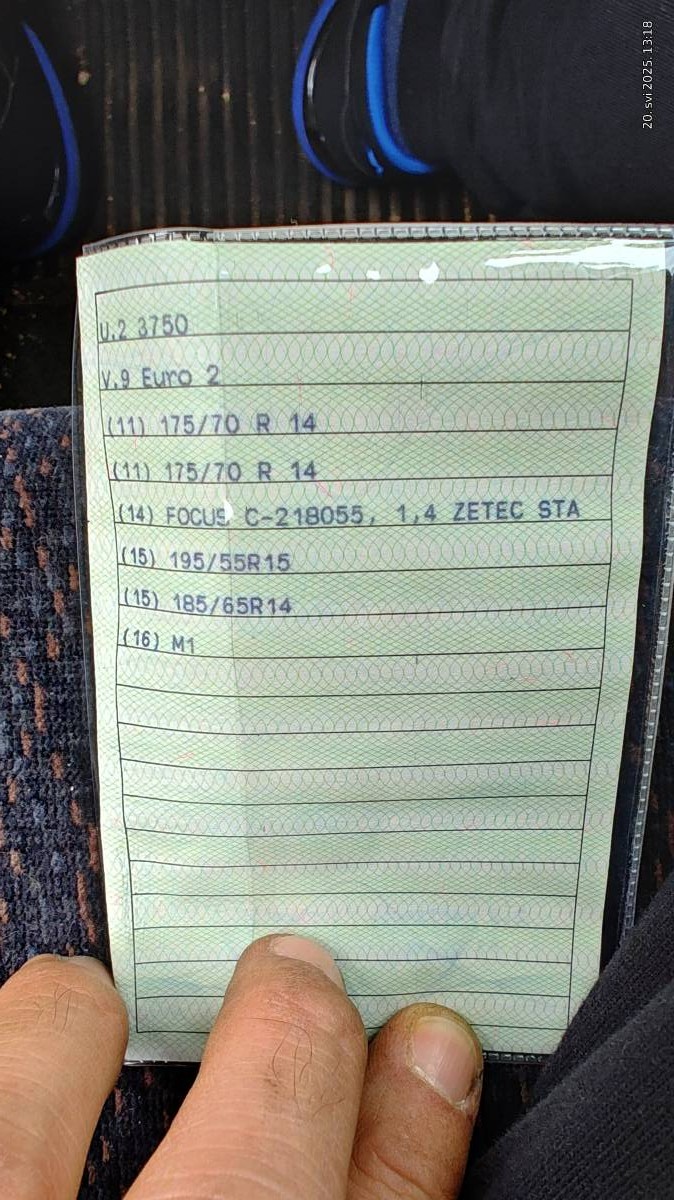 20. svi 2025. 13:18
U.2 3750
V.9 Euro 2
(11) 175/70 R 14
(11) 175/70 R 14
(14) FOCUS C-218055, 1,4 ZETEC STA
(15) 195/55R15
(15) 185/65R14
(16) M1